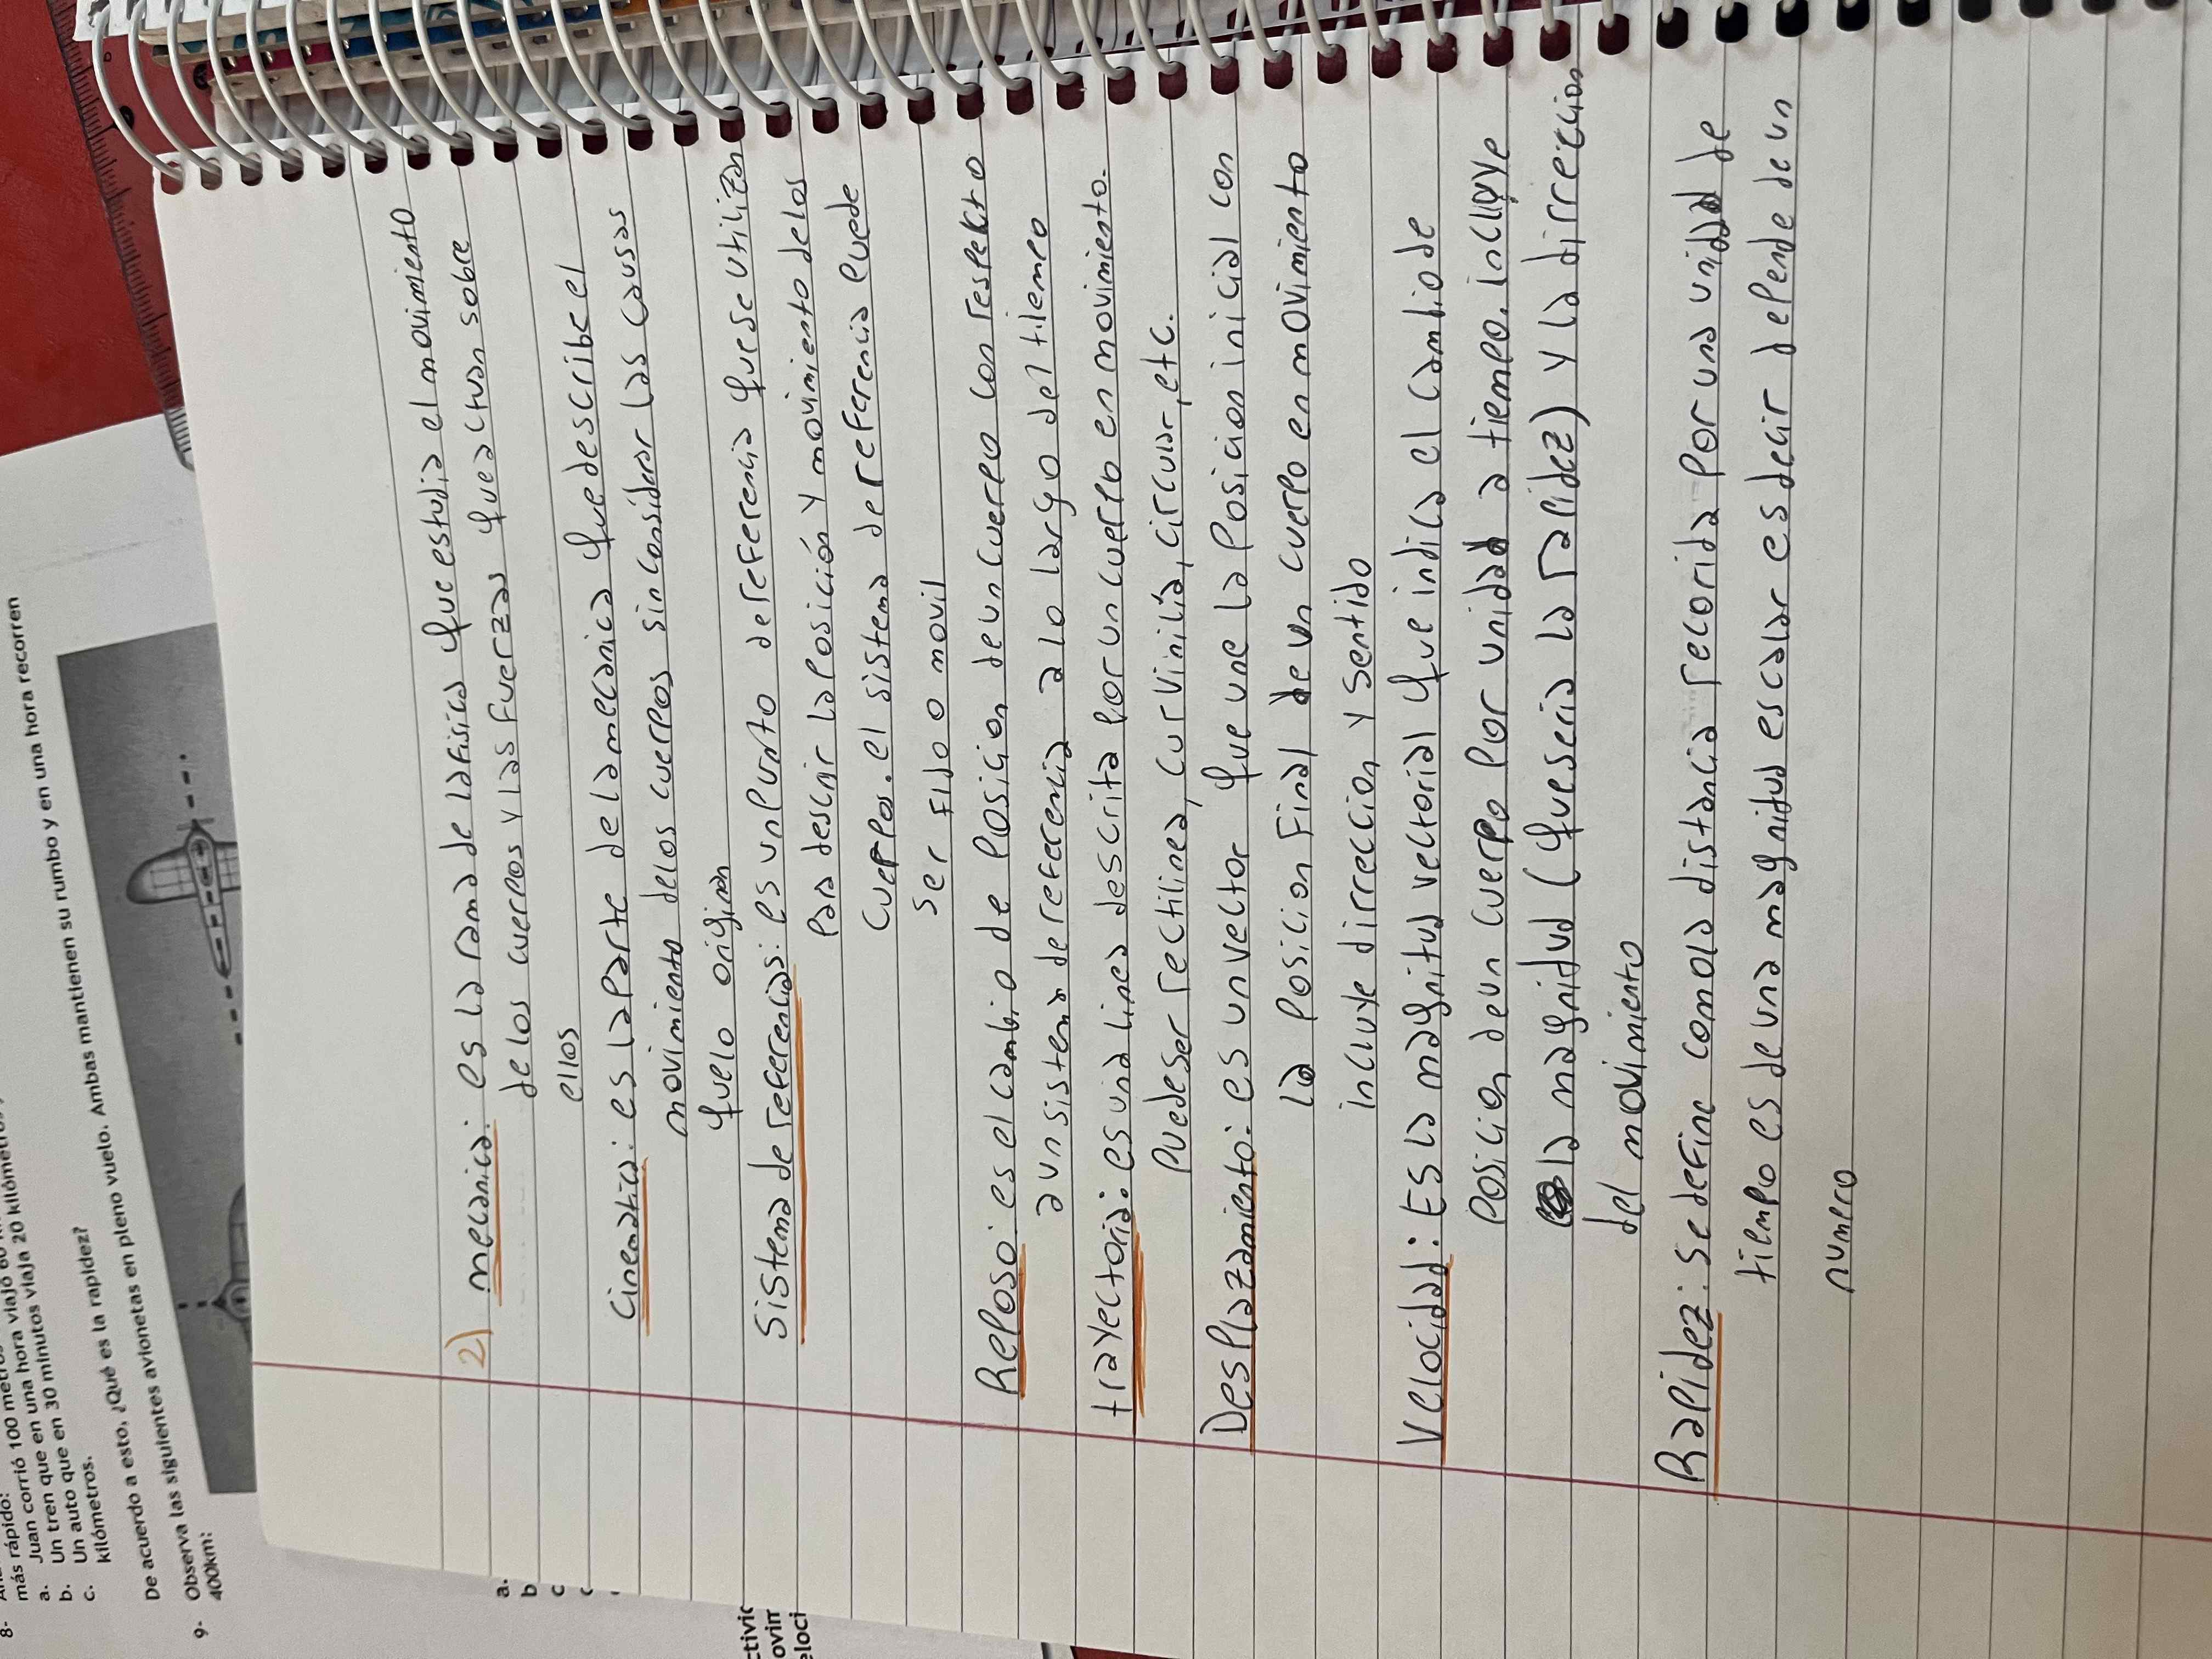 más rápido:
a. Juan corrió 100 metros
b. Un tren que en una hora viajó
c. Un auto que en 30 minutos viaja 20 kilómetros
kilómetros.
De acuerdo a esto, ¿Qué es la rapidez?
8-
9- Observa las siguientes avionetas en pleno vuelo. Ambas mantienen su rumbo y en una hora recorren
400km:
a.
b
c
ctivic
ovim
eloci
2) mecanica: es la rama de la fisica que estudia el movimiento
de los cuerpos y las fuerzas que actuan sobre
ellos
Cinematica: es la parte de la mecanica que describe el
movimiento de los cuerpos sin considerar las causas
que lo originan
Sistema de referencias: es un punto de referencia que se utilizan
para descrir la posición y movimiento de los
cuerpos. el sistema de referencia puede
ser fijo o movil
Reposo: es el cambio de posicion de un cuerpo con respecto
a un sistema de referencia a lo largo del tiempo
trayectoria: es una linea descrita por un cuerpo en movimiento.
puede ser rectilinea, curvinilia, circular, etc.
Desplazamiento: es un vector que une la posicion inicial con
la posicion final de un cuerpo en movimiento
incluye dirreccion y sentido
Velocidad: Es la magnitud vectorial que indica el cambio de
posicion de un cuerpo por unidad a tiempo. incluye
la magnidud (que seria la rapidez) y la dirreccion
del movimiento
Rapidez: se define como la distancia recorida por una unidad de
tiempo es de una magnitud escalar es decir depende de un
numero